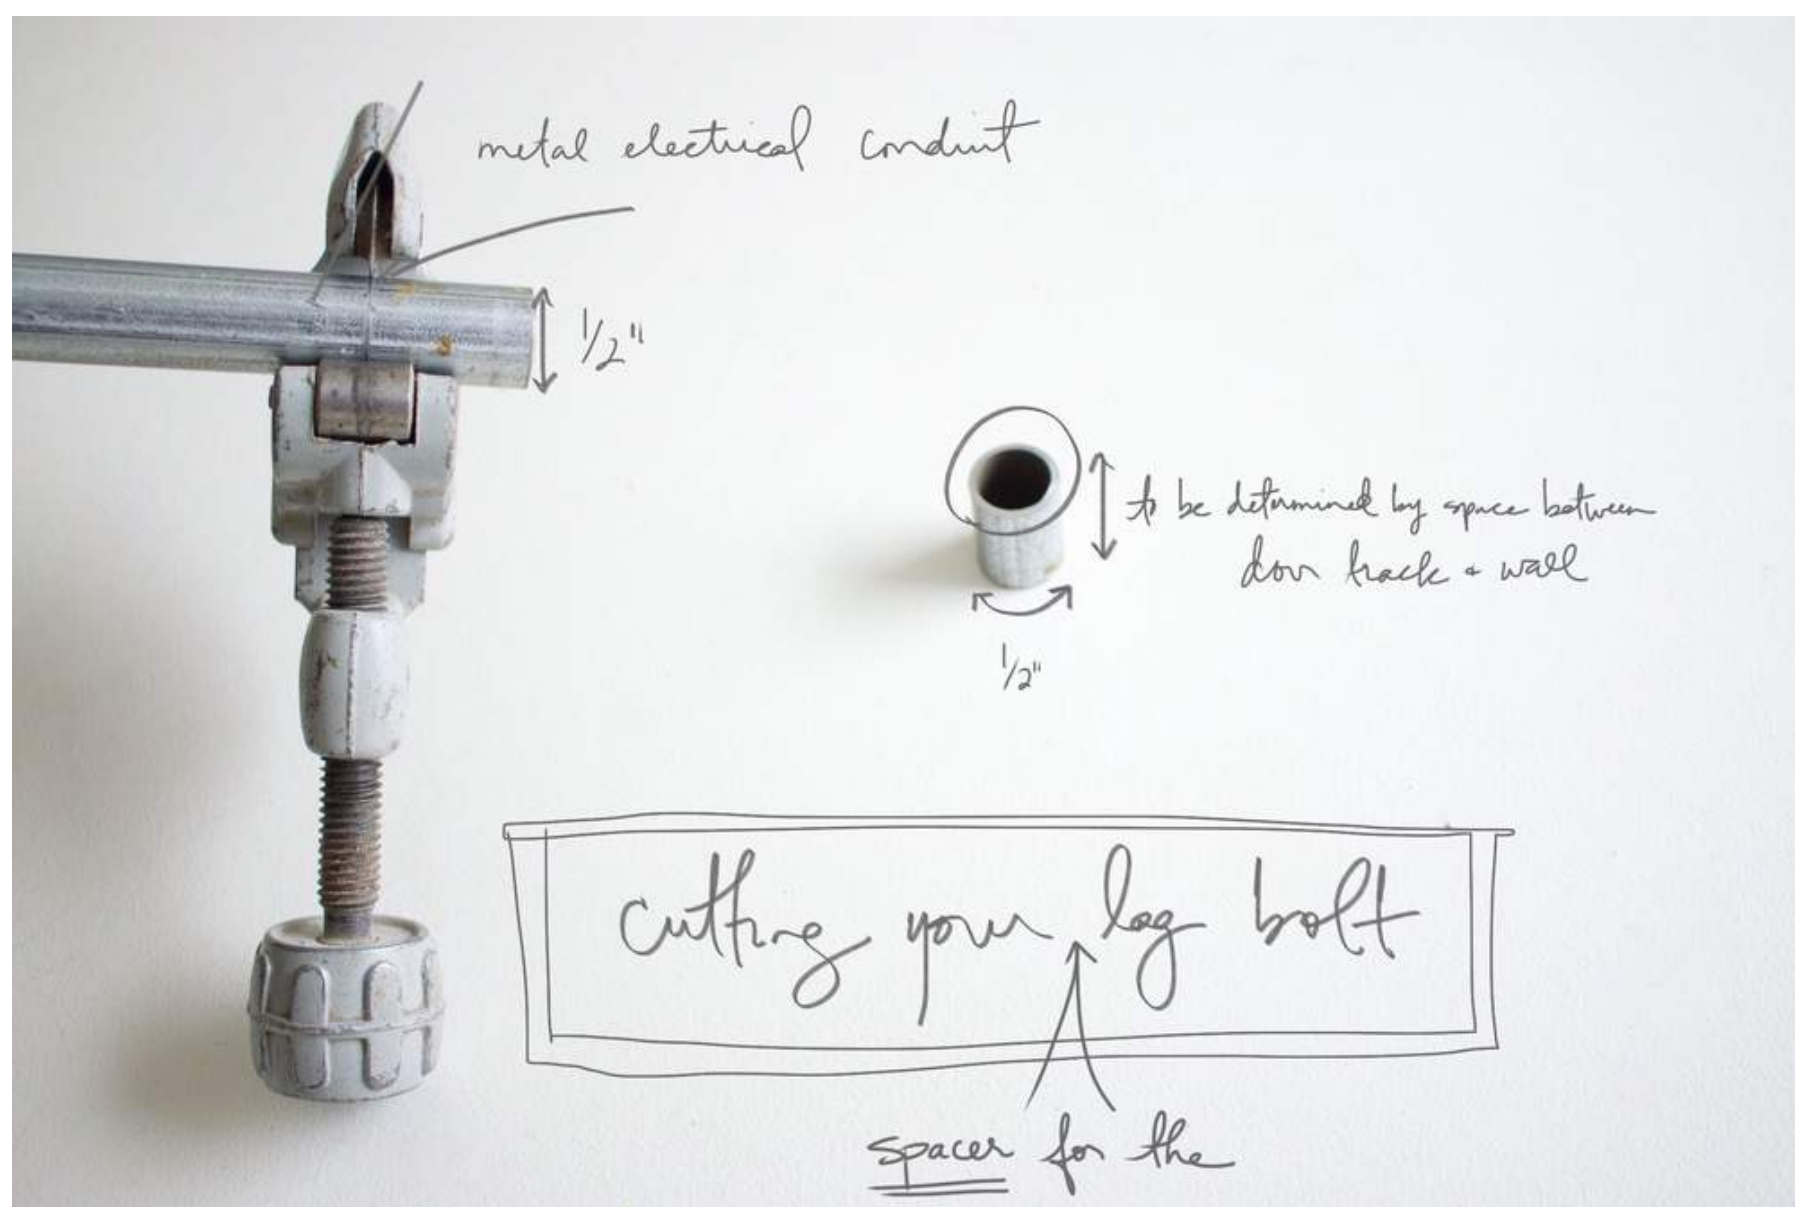 metal electrical conduit
1/2"
to be determined by space between
door track + wall
1/2"
cutting your lag bolt
spacer for the